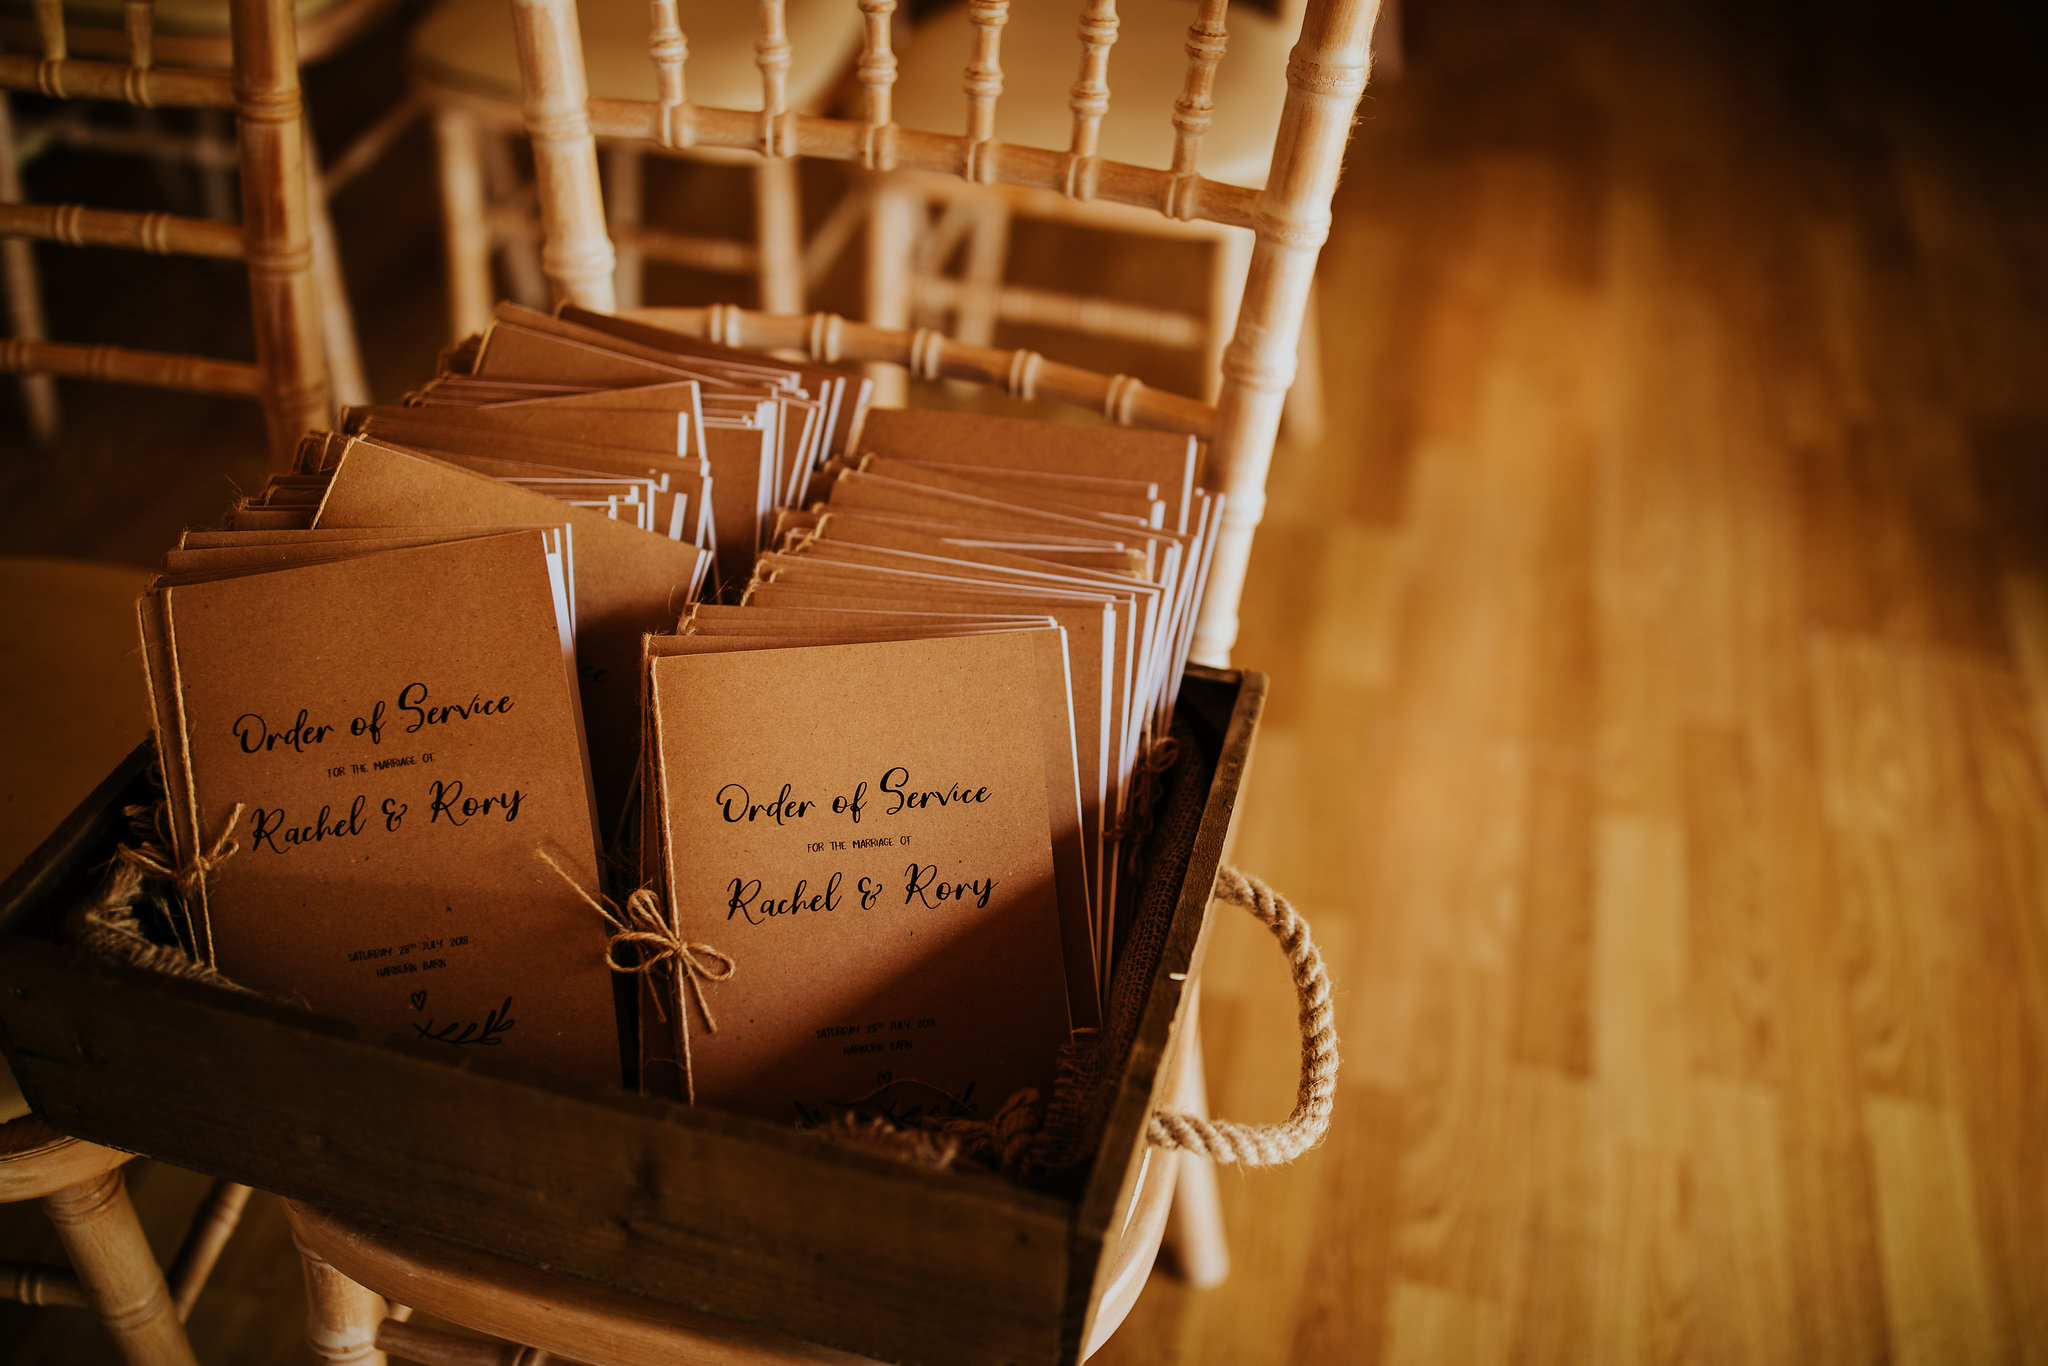 Order of Service
FOR THE MARRIAGE OF
Rachel & Rory
SATURDAY 28TH JULY 2018
HARBURN BARN
Order of Service
FOR THE MARRIAGE OF
Rachel & Rory
SATURDAY 28TH JULY 2018
HARBURN BARN